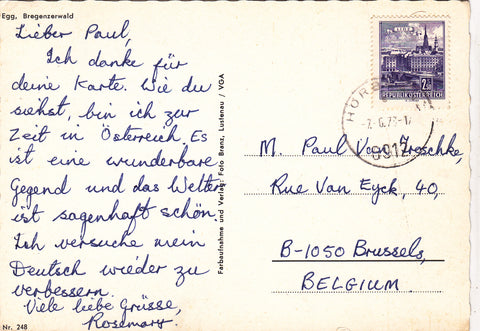 Egg, Bregenzerwald
Lieber Paul,
Ich danke für
deine Karte. Wie du
siehst, bin ich zur
Zeit in Österreich. Es
ist eine wunderbare
Gegend und das Wetter
ist sagenhaft schön.
Ich versuche mein
Deutsch wieder zu
verbessern.
Viele liebe Grüsse,
Rosemary.
Nr. 248
Farbaufnahme und Verlag: Foto Branz, Lustenau / VGA
LINZ
2S
REPUBLIK ÖSTERREICH
6912
M. Paul Van
Rue Van Eyck, 40,
B-1050 Brussels,
BELGIUM.